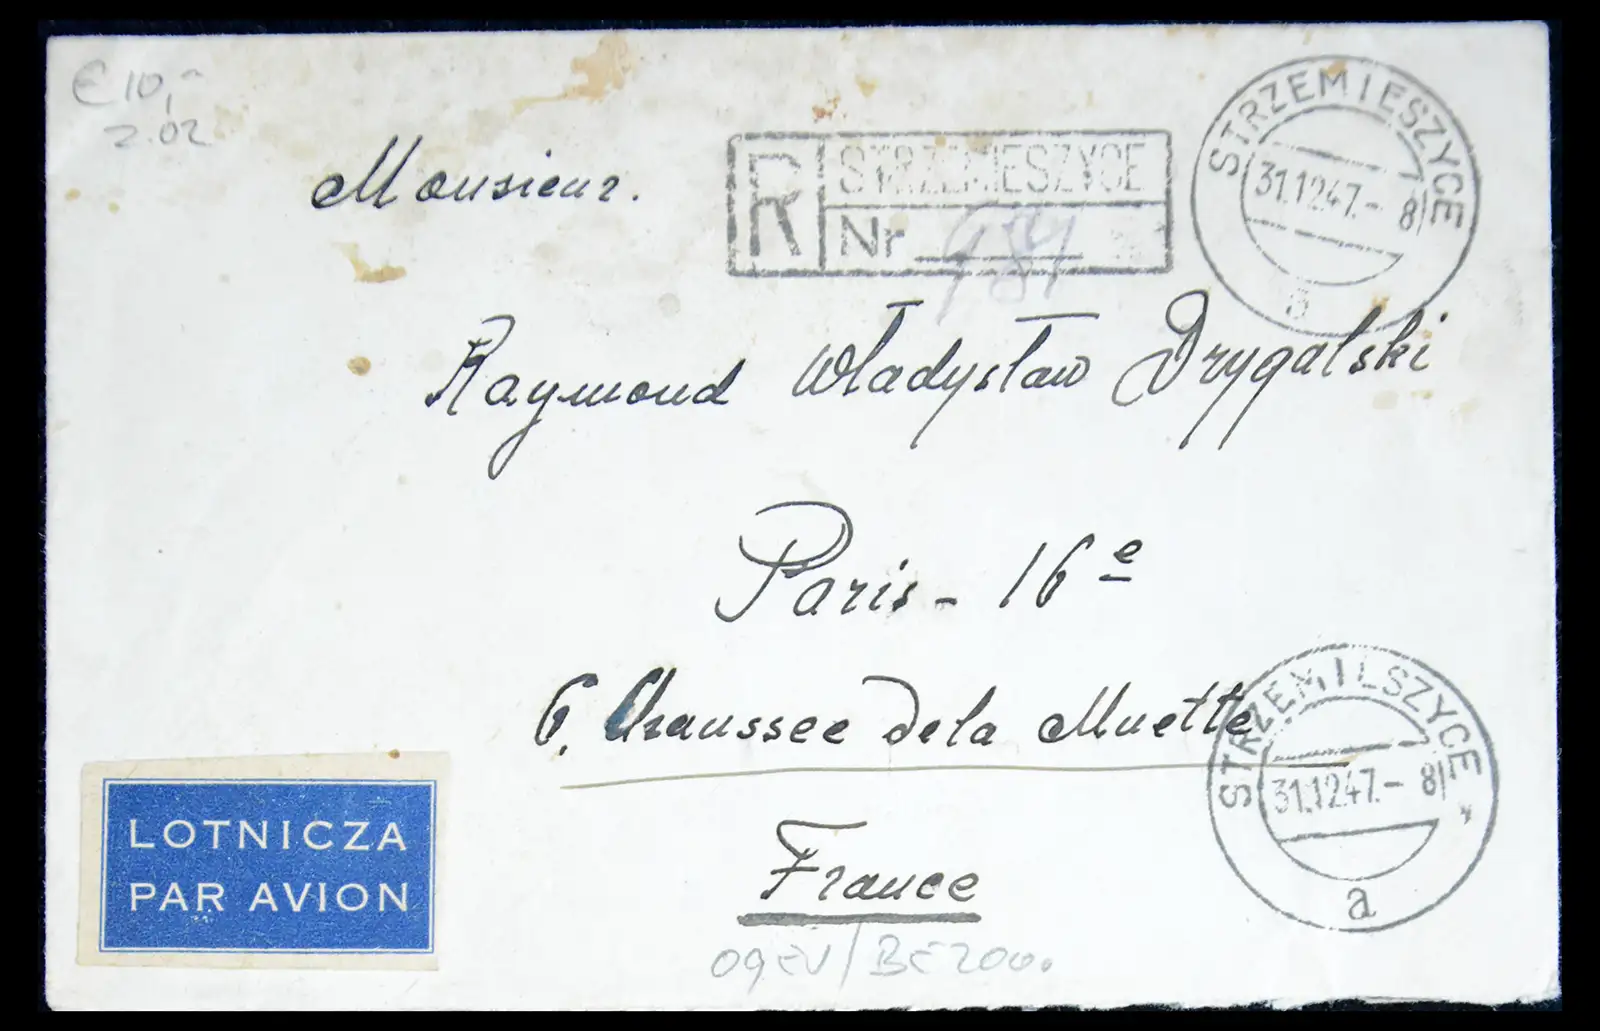 € 10,-
2.02
Monsieur.
R STRZEMIESZYCE
Nr 984
STRZEMIESZYCE
31.12.47.- 8
a
Raymond Władysław Drygalski
Paris - 16e
6. Chaussee de la Muette
France
STRZEMIESZYCE
31.12.47.- 8
a
LOTNICZA
PAR AVION